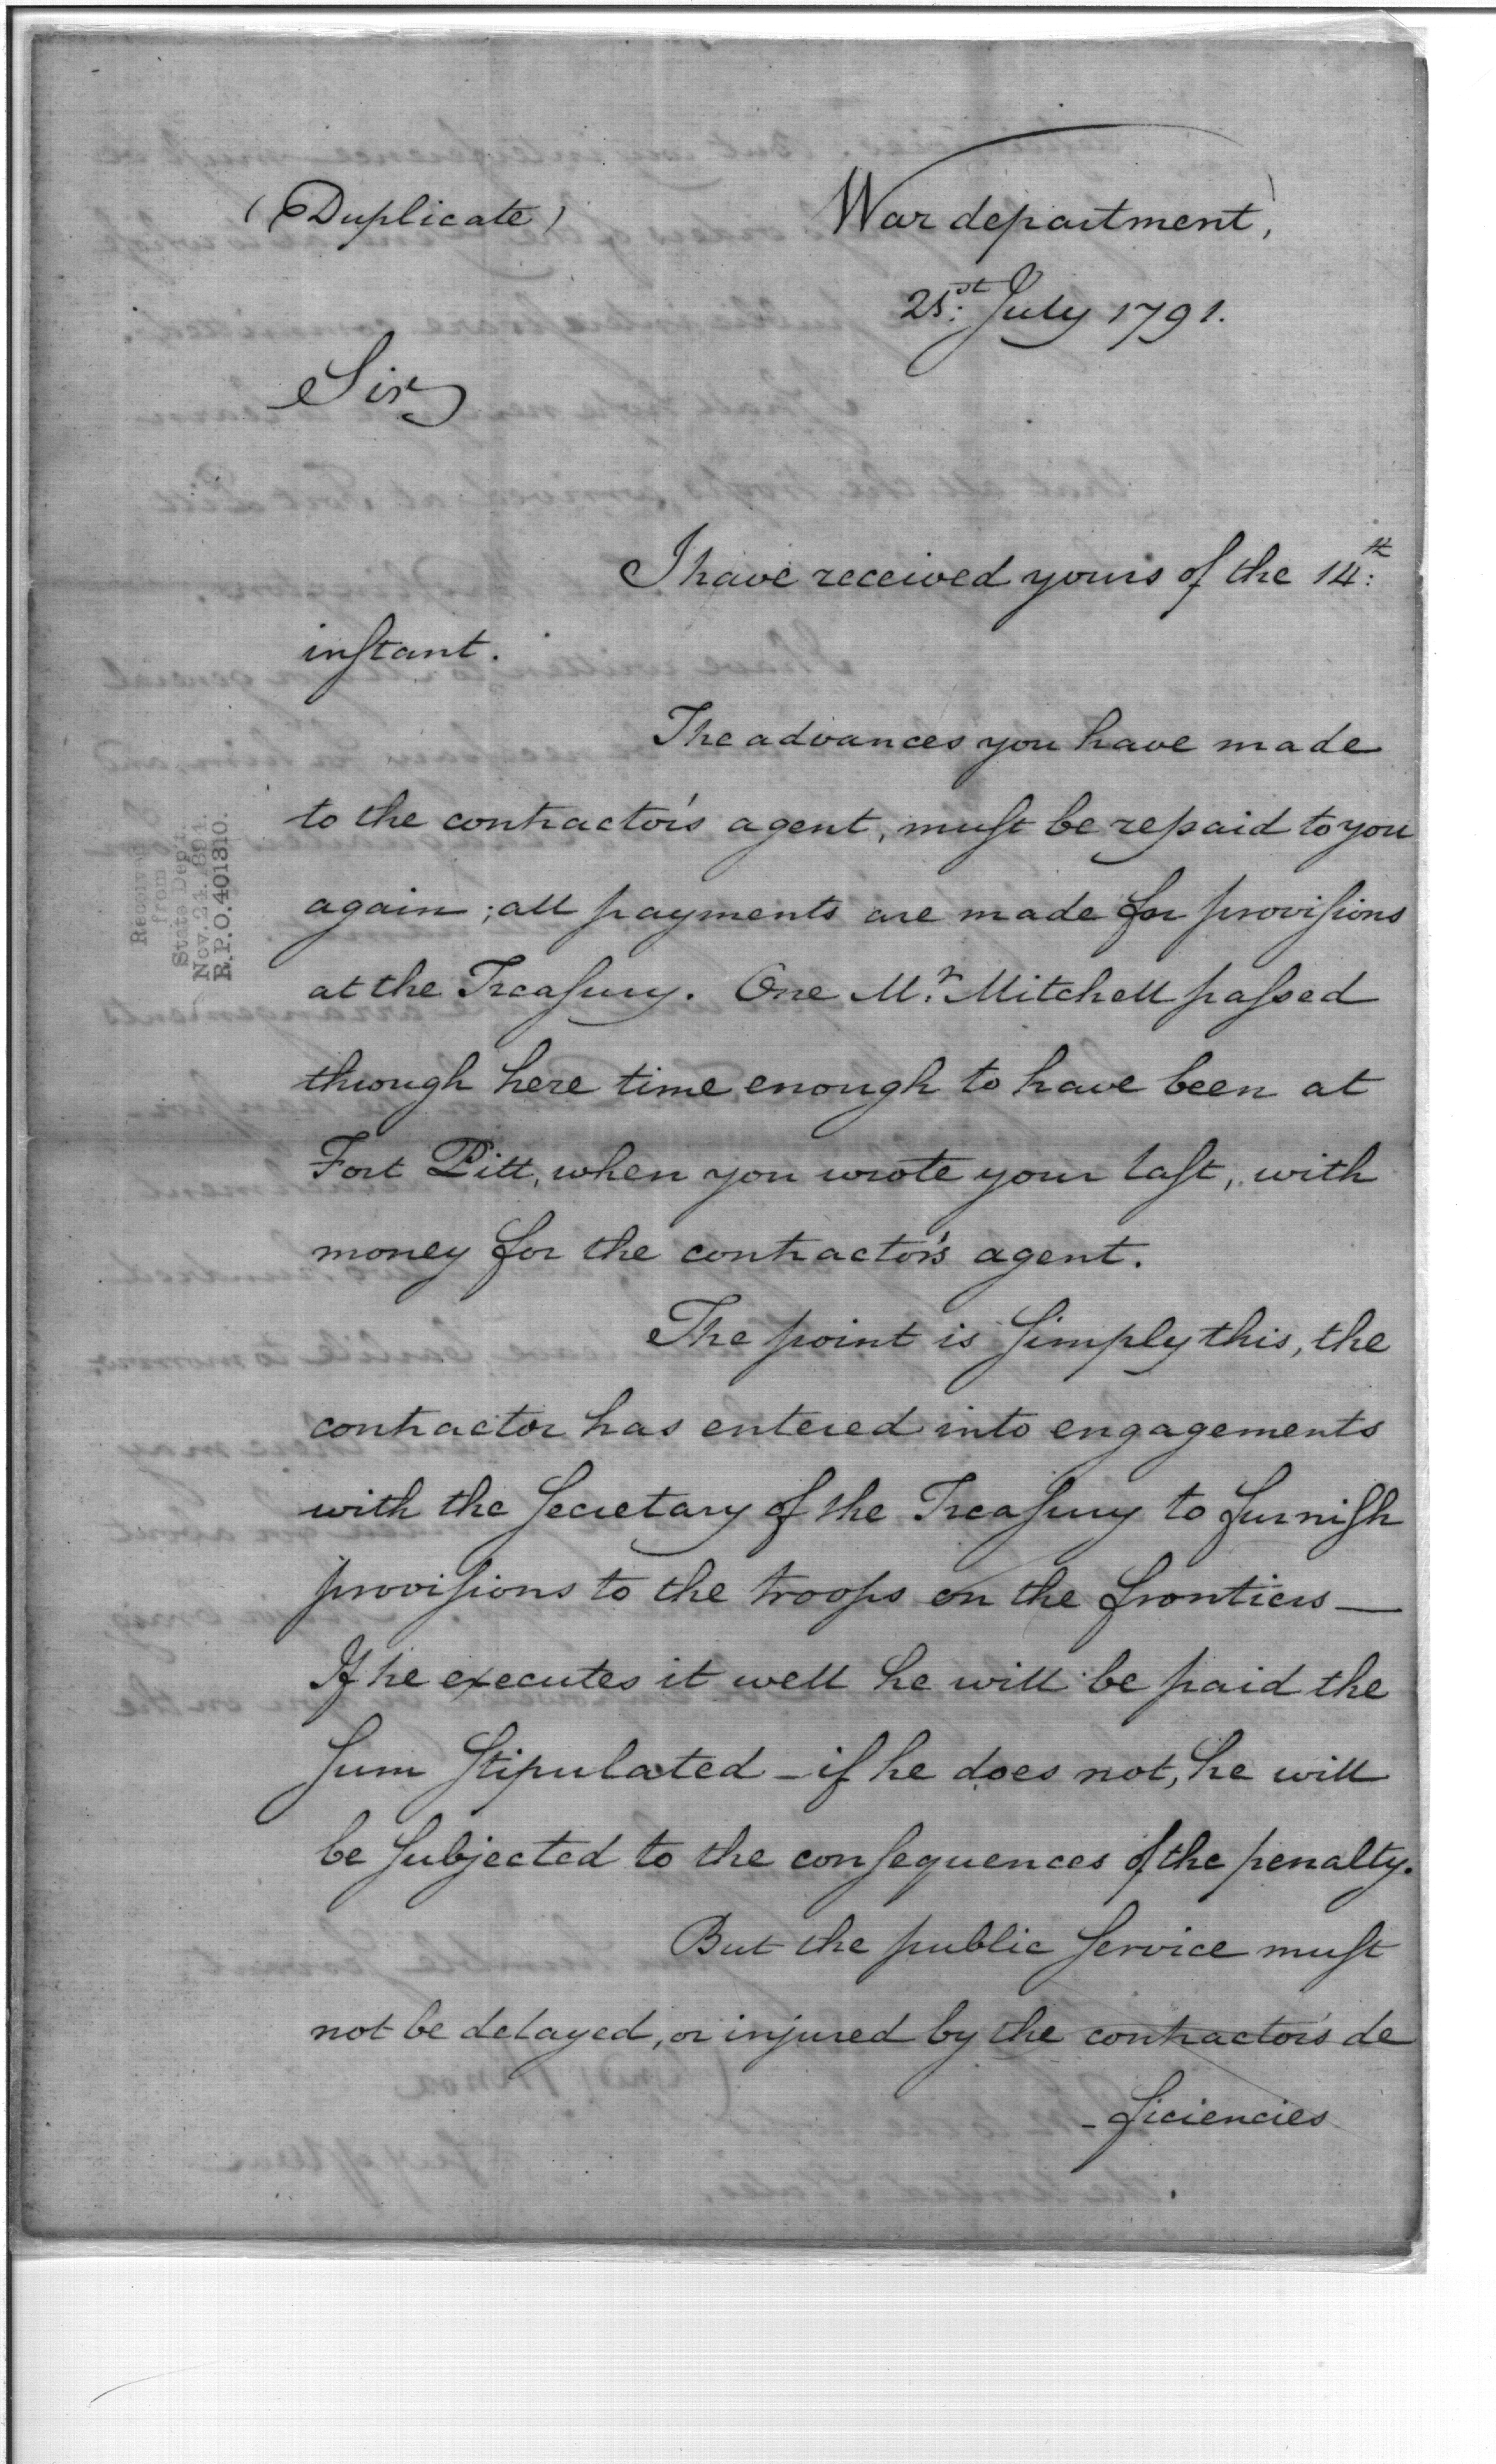 (Duplicate)
War department,
21st: July 1791.
Sir,
I have received yours of the 14th:
inſtant.
The advances you have made
to the contractor's agent, muſt be repaid to you
again; all payments are made for proviſions
at the Treaſury. One Mr. Mitchell paſsed
through here time enough to have been at
Fort Pitt, when you wrote your laſt, with
money for the contractor's agent.
The point is ſimply this, the
contractor has entered into engagements
with the ſecretary of the Treaſury to furniſh
proviſions to the troops on the frontiers —
If he executes it well he will be paid the
ſum ſtipulated – if he does not, he will
be ſubjected to the conſequences of the penalty.
But the public ſervice muſt
not be delayed, or injured by the contractor's de
-ficiencies
Received
from
State Dep't.
Nov. 24. 1891.
R.P.O. 401310.